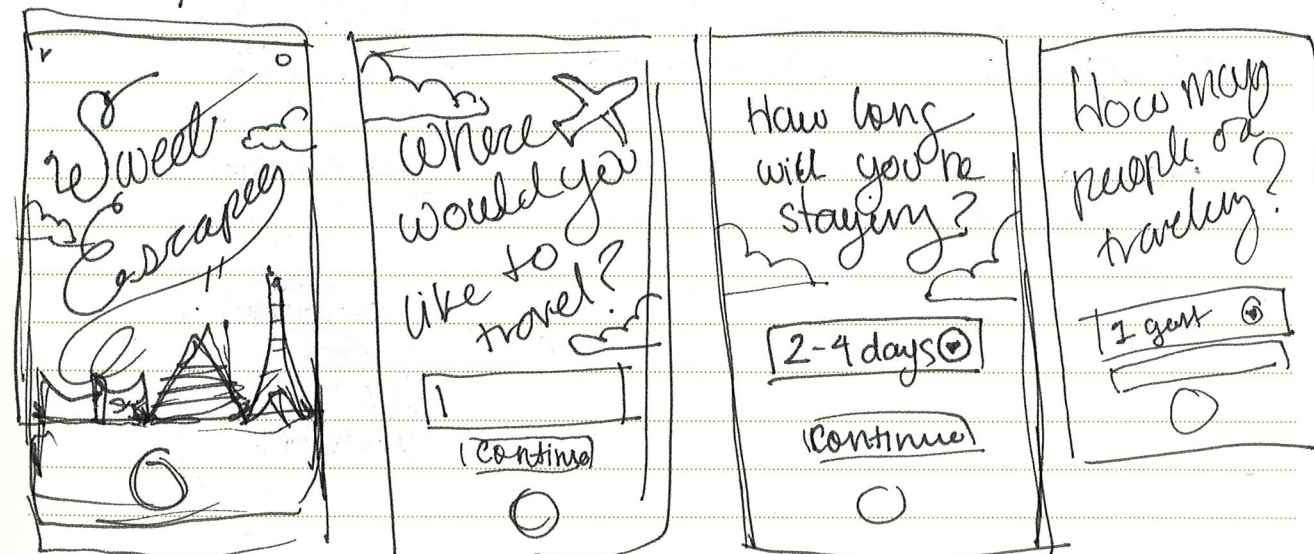 Sweet
Escapes
Where
would you
like to
travel?
Continue
How long
will you be
staying?
2-4 days
Continue
How many
people
traveling?
1